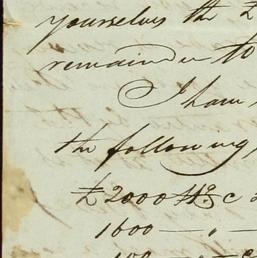 yourselves the £
remainder to
I have
the following
£2000
1600 — " —